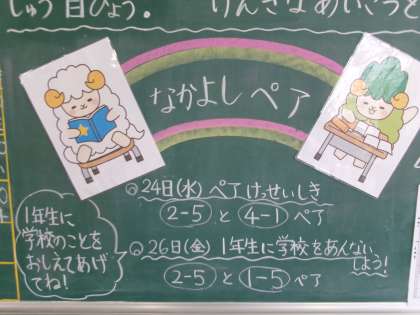 しゅう目ひょう。
げんきなあいさつを
なかよしペア
24日(水) ペアけっせいしき
2-5と4-1ペア
1年生に
学校のことを
おしえてあげ
てね!
26日(金) 1年生に学校をあんない
しよう!
2-5と1-5ペア